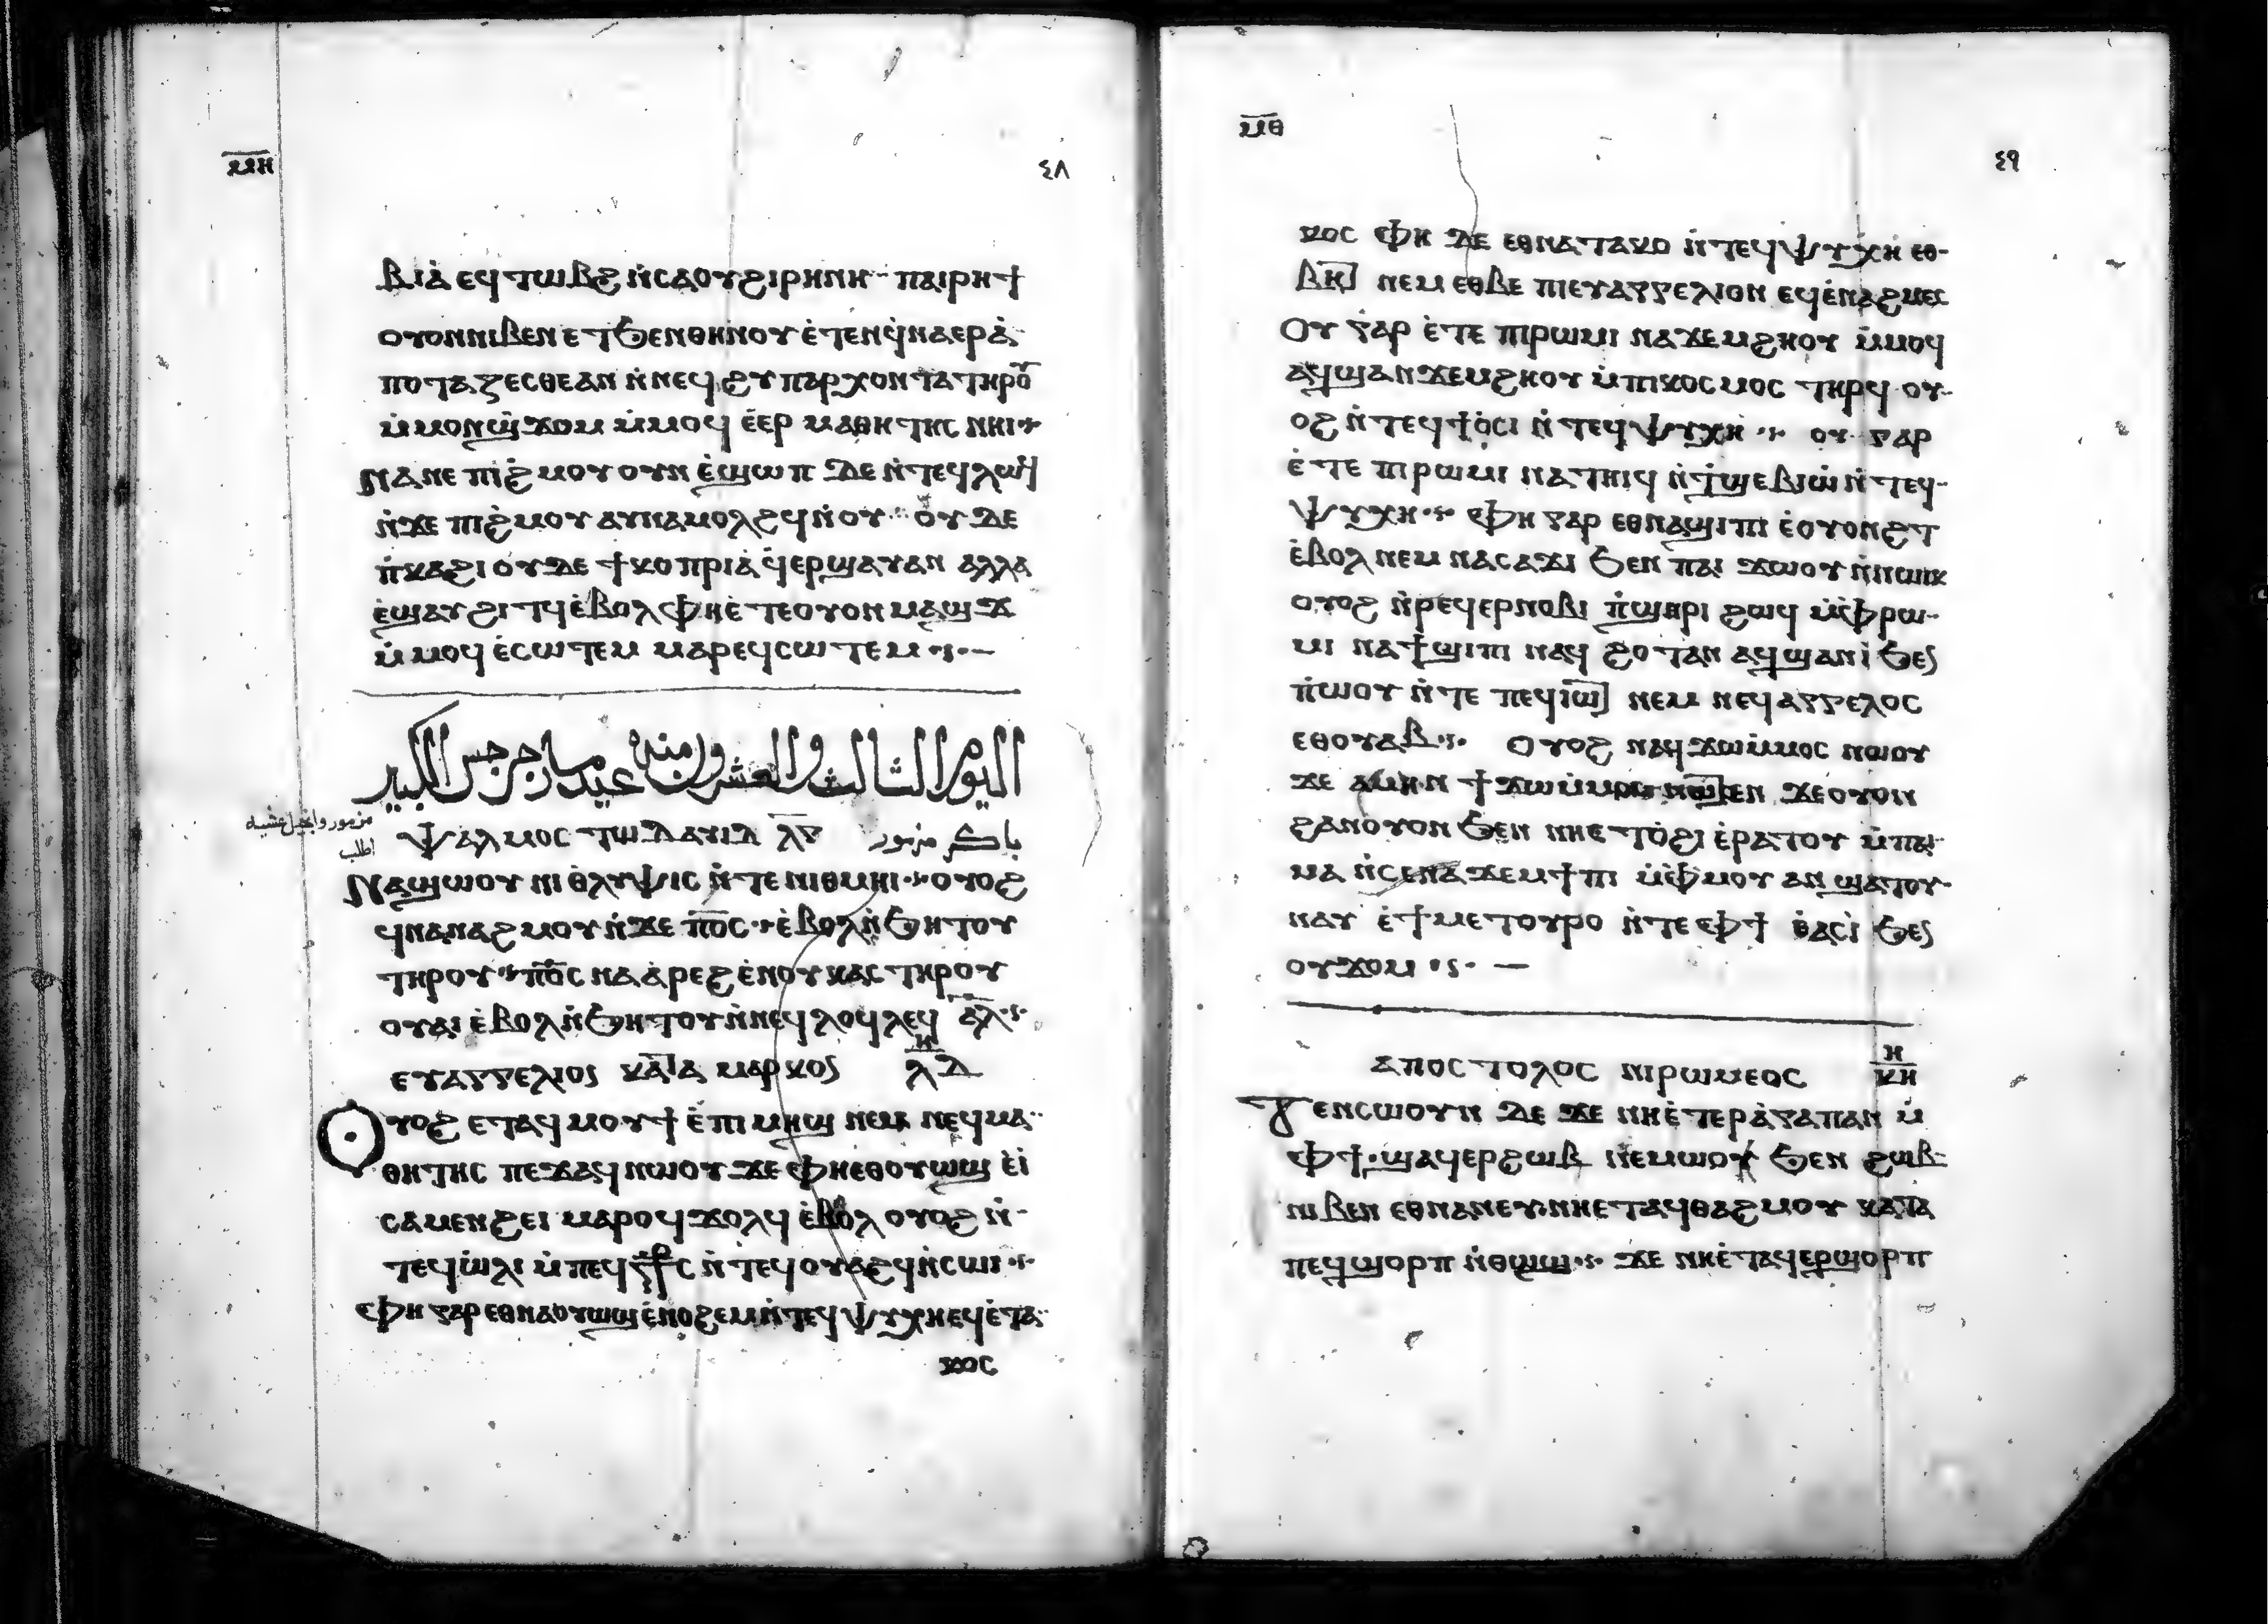 ⲙ̅ⲏ̅
٤٨
ⲃⲓⲁ̀ ⲉϥⲧⲱⲃϩ ⲛ̀ⲥⲁⲟⲩϩⲓⲣⲏⲛⲏ ⲡⲁⲓⲣⲏϯ
ⲟⲩⲟⲛⲛⲓⲃⲉⲛ ⲉⲧϧⲉⲛⲑⲏⲛⲟⲩ ⲉ̀ⲧⲉⲛϥ̀ⲛⲁⲉⲣⲁ̀
ⲡⲟⲧⲁⲍⲉⲥⲑⲉⲁⲛ ⲛ̀ⲛⲉϥϩⲩⲡⲁⲣⲭⲟⲛⲧⲁ ⲧⲏⲣⲟⲩ
ⲙ̀ⲙⲟⲛϣ̀ϫⲟⲙ ⲙ̀ⲙⲟϥ ⲉ̀ⲉⲣ ⲙⲁⲑⲏⲧⲏⲥ ⲛⲏⲓ
ⲛⲁⲛⲉ ⲡⲓϩ̀ⲙⲟⲩ ⲟⲩⲛ ⲉ̀ϣⲱⲡ ⲇⲉ ⲛ̀ⲧⲉϥⲗⲱϥ
ⲛ̀ϫⲉ ⲡⲓϩ̀ⲙⲟⲩ ⲁⲩⲛⲁⲙⲟⲗϩϥ ⲛ̀ⲟⲩ ⲟⲩⲇⲉ
ⲡ̀ⲕⲁϩⲓ ⲟⲩⲇⲉ ϯⲕⲟⲡⲣⲓⲁ̀ ϥ̀ⲉⲣϣⲁⲩⲁⲛ ⲁⲗⲗⲁ
ⲉ̀ϣⲁⲩϩⲓⲧϥ ⲉ̀ⲃⲟⲗ ⲫⲏⲉ̀ⲧⲉⲟⲩⲟⲛ ⲙⲁϣϫ
ⲙ̀ⲙⲟϥ ⲉ̀ⲥⲱⲧⲉⲙ ⲙⲁⲣⲉϥⲥⲱⲧⲉⲙ
اليوم الثالث والعشرون منه عيد مار جرجس الكبير
مزمور وانجيل عشيه
اطلب
ⲯⲁⲗⲙⲟⲥ ⲧⲱ ⲇⲁⲩⲓⲇ ⲗ̅ⲅ̅ باكر مزمور
ⲛⲁϣⲱⲟⲩ ⲛⲓⲑⲗⲩⲯⲓⲥ ⲛ̀ⲧⲉ ⲛⲓⲑⲙⲏⲓ ⲟⲩⲟϩ
ϥⲛⲁⲛⲁϩⲙⲟⲩ ⲛ̀ϫⲉ ⲡ̅ⲟ̅ⲥ̅ ⲉ̀ⲃⲟⲗ ⲛ̀ϧⲏⲧⲟⲩ
ⲧⲏⲣⲟⲩ ⲡ̅ⲟ̅ⲥ̅ ⲛⲁⲁ̀ⲣⲉϩ ⲉ̀ⲛⲟⲩⲕⲁⲥ ⲧⲏⲣⲟⲩ
ⲟⲩⲁⲓ ⲉ̀ⲃⲟⲗ ⲛ̀ϧⲏⲧⲟⲩ ⲛ̀ⲛⲉϥⲗⲟϥⲗⲉϥ ⲁ̅ⲗ̅
ⲉⲩⲁⲅⲅⲉⲗⲓⲟⲥ ⲕⲁⲧⲁ ⲙⲁⲣⲕⲟⲥ ⲏ̅ ⲗ̅ⲇ̅
ⲟⲩⲟϩ ⲉⲧⲁϥⲙⲟⲩϯ ⲉ̀ⲡⲓⲙⲏϣ ⲛⲉⲙ ⲛⲉϥⲙⲁ
ⲑⲏⲧⲏⲥ ⲡⲉϫⲁϥ ⲛⲱⲟⲩ ϫⲉ ⲫⲏⲉⲑⲟⲩⲱϣ ⲉ̀ⲓ̀
ⲥⲁⲙⲉⲛϩⲉⲓ ⲙⲁⲣⲟϥϫⲟⲗϥ ⲉ̀ⲃⲟⲗ ⲟⲩⲟϩ ⲛ̀
ⲧⲉϥⲱ̀ⲗⲓ ⲙ̀ⲡⲉϥⳁⲥ ⲛ̀ⲧⲉϥⲟⲩⲁϩϥ ⲛ̀ⲥⲱⲓ
ⲫⲏ ⲅⲁⲣ ⲉⲑⲛⲁⲟⲩⲱϣ ⲉ̀ⲛⲟϩⲉⲙ ⲛ̀ⲧⲉϥⲯⲩⲭⲏ ⲉϥⲉ̀ⲧⲁ
ⲕⲟⲥ
ⲙ̅ⲑ̅
٤٩
ⲕⲟⲥ ⲫⲏ ⲇⲉ ⲉⲑⲛⲁⲧⲁⲕⲟ ⲛ̀ⲧⲉϥⲯⲩⲭⲏ ⲉⲑ
ⲃⲏⲧ ⲛⲉⲙ ⲉⲑⲃⲉ ⲡⲓⲉⲩⲁⲅⲅⲉⲗⲓⲟⲛ ⲉϥⲉ̀ⲛⲁϩⲙⲉⲥ
ⲟⲩ ⲅⲁⲣ ⲉ̀ⲧⲉ ⲡⲓⲣⲱⲙⲓ ⲛⲁϫⲉⲙϩⲏⲟⲩ ⲙ̀ⲙⲟϥ
ⲁϥϣⲁⲛϫⲉⲙϩⲏⲟⲩ ⲙ̀ⲡⲓⲕⲟⲥⲙⲟⲥ ⲧⲏⲣϥ ⲟⲩ
ⲟϩ ⲛ̀ⲧⲉϥϯⲟ̀ⲥⲓ ⲛ̀ⲧⲉϥⲯⲩⲭⲏ ⲟⲩ ⲅⲁⲣ
ⲉ̀ⲧⲉ ⲡⲓⲣⲱⲙⲓ ⲛⲁⲧⲏⲓϥ ⲛ̀ⲧ̀ϣⲉⲃⲓⲱ̀ ⲛ̀ⲧⲉϥ
ⲯⲩⲭⲏ ⲫⲏ ⲅⲁⲣ ⲉⲑⲛⲁϣⲓⲡⲓ ⲉ̀ⲟⲩⲟⲛϩⲧ
ⲉ̀ⲃⲟⲗ ⲛⲉⲙ ⲛⲁⲥⲁϫⲓ ϧⲉⲛ ⲡⲁⲓ ϫⲱⲟⲩ ⲛ̀ⲛⲱⲓⲕ
ⲟⲩⲟϩ ⲛ̀ⲣⲉϥⲉⲣⲛⲟⲃⲓ ⲡ̀ϣⲏⲣⲓ ϩⲱϥ ⲙ̀ⲫⲣⲱ
ⲙⲓ ⲛⲁϯϣⲓⲡⲓ ⲛⲁϥ ϩⲟⲧⲁⲛ ⲁϥϣⲁⲛⲓ̀ ϧⲉⲛ
ⲡ̀ⲱⲟⲩ ⲛ̀ⲧⲉ ⲡⲉϥⲓⲱⲧ ⲛⲉⲙ ⲛⲉϥⲁⲅⲅⲉⲗⲟⲥ
ⲉⲑⲟⲩⲁⲃ ⲟⲩⲟϩ ⲛⲁϥϫⲱⲙ̀ⲙⲟⲥ ⲛⲱⲟⲩ
ϫⲉ ⲁⲙⲏⲛ ϯϫⲱⲙ̀ⲙⲟⲥ ⲛⲱⲧⲉⲛ ϫⲉⲟⲩⲟⲛ
ϩⲁⲛⲟⲩⲟⲛ ϧⲉⲛ ⲛⲏⲉⲧⲟ̀ϩⲓ ⲉ̀ⲣⲁⲧⲟⲩ ⲙ̀ⲡⲁⲓ
ⲙⲁ ⲛ̀ⲥⲉⲛⲁϫⲉⲙϯⲡⲓ ⲙ̀ⲫⲙⲟⲩ ⲁⲛ ϣⲁⲧⲟⲩ
ⲛⲁⲩ ⲉ̀ϯⲙⲉⲧⲟⲩⲣⲟ ⲛ̀ⲧⲉ ⲫϯ ⲉ̀ⲁⲥⲓ̀ ϧⲉⲛ
ⲟⲩϫⲟⲙ
ⲁⲡⲟⲥⲧⲟⲗⲟⲥ ⲛⲓⲣⲱⲙⲉⲟⲥ ⲏ̅ ⲕⲏ
ⲧⲉⲛⲥⲱⲟⲩⲛ ⲇⲉ ϫⲉ ⲛⲏⲉ̀ⲧⲉⲣⲁ̀ⲅⲁⲡⲁⲛ ⲙ̀
ⲫϯ ϣⲁϥⲉⲣϩⲱⲃ ⲛⲉⲙⲱⲟⲩ ϧⲉⲛ ϩⲱⲃ
ⲛⲓⲃⲉⲛ ⲉⲑⲛⲁⲛⲉⲩ ⲛⲏⲉⲧⲁϥⲑⲁϩⲙⲟⲩ ⲕⲁⲧⲁ
ⲡⲉϥϣⲟⲣⲡ ⲛ̀ⲑⲱϣ ϫⲉ ⲛⲏⲉ̀ⲧⲁϥⲉⲣϣⲟⲣⲡ